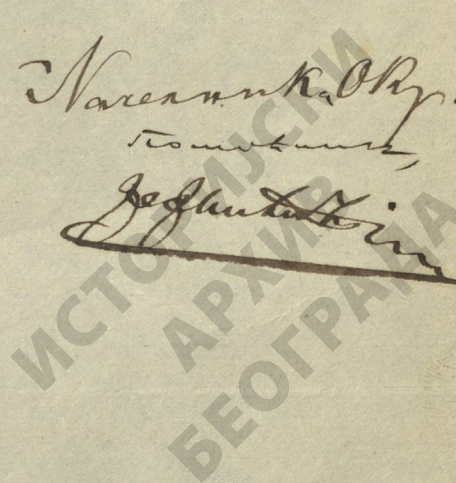 Началника Окр.
помоћник,
ИСТОРИЈСКИ
АРХИВ
БЕОГРАДА